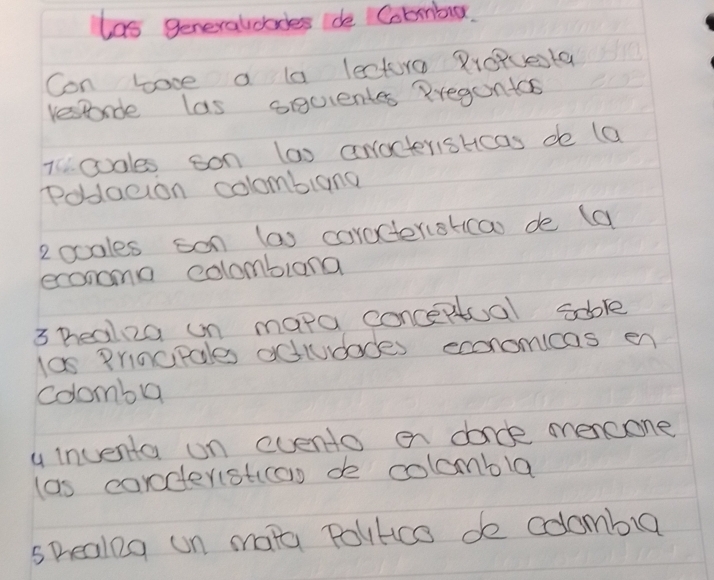 Las generalidades de Colombia.
Con base a la lectura Propuesta
responde las siguientes Preguntas
1 cuales son las caracteristicas de la
Poblacion colombiana
2 cuales son las caracteristicas de la
economia colombiana
3 Realiza un mapa conceptual sobre
las Principales actividades economicas en
Colombia
4 inventa un cuento en donde mencione
las caracteristicas de colombia
5 Realiza un mapa Politico de colombia